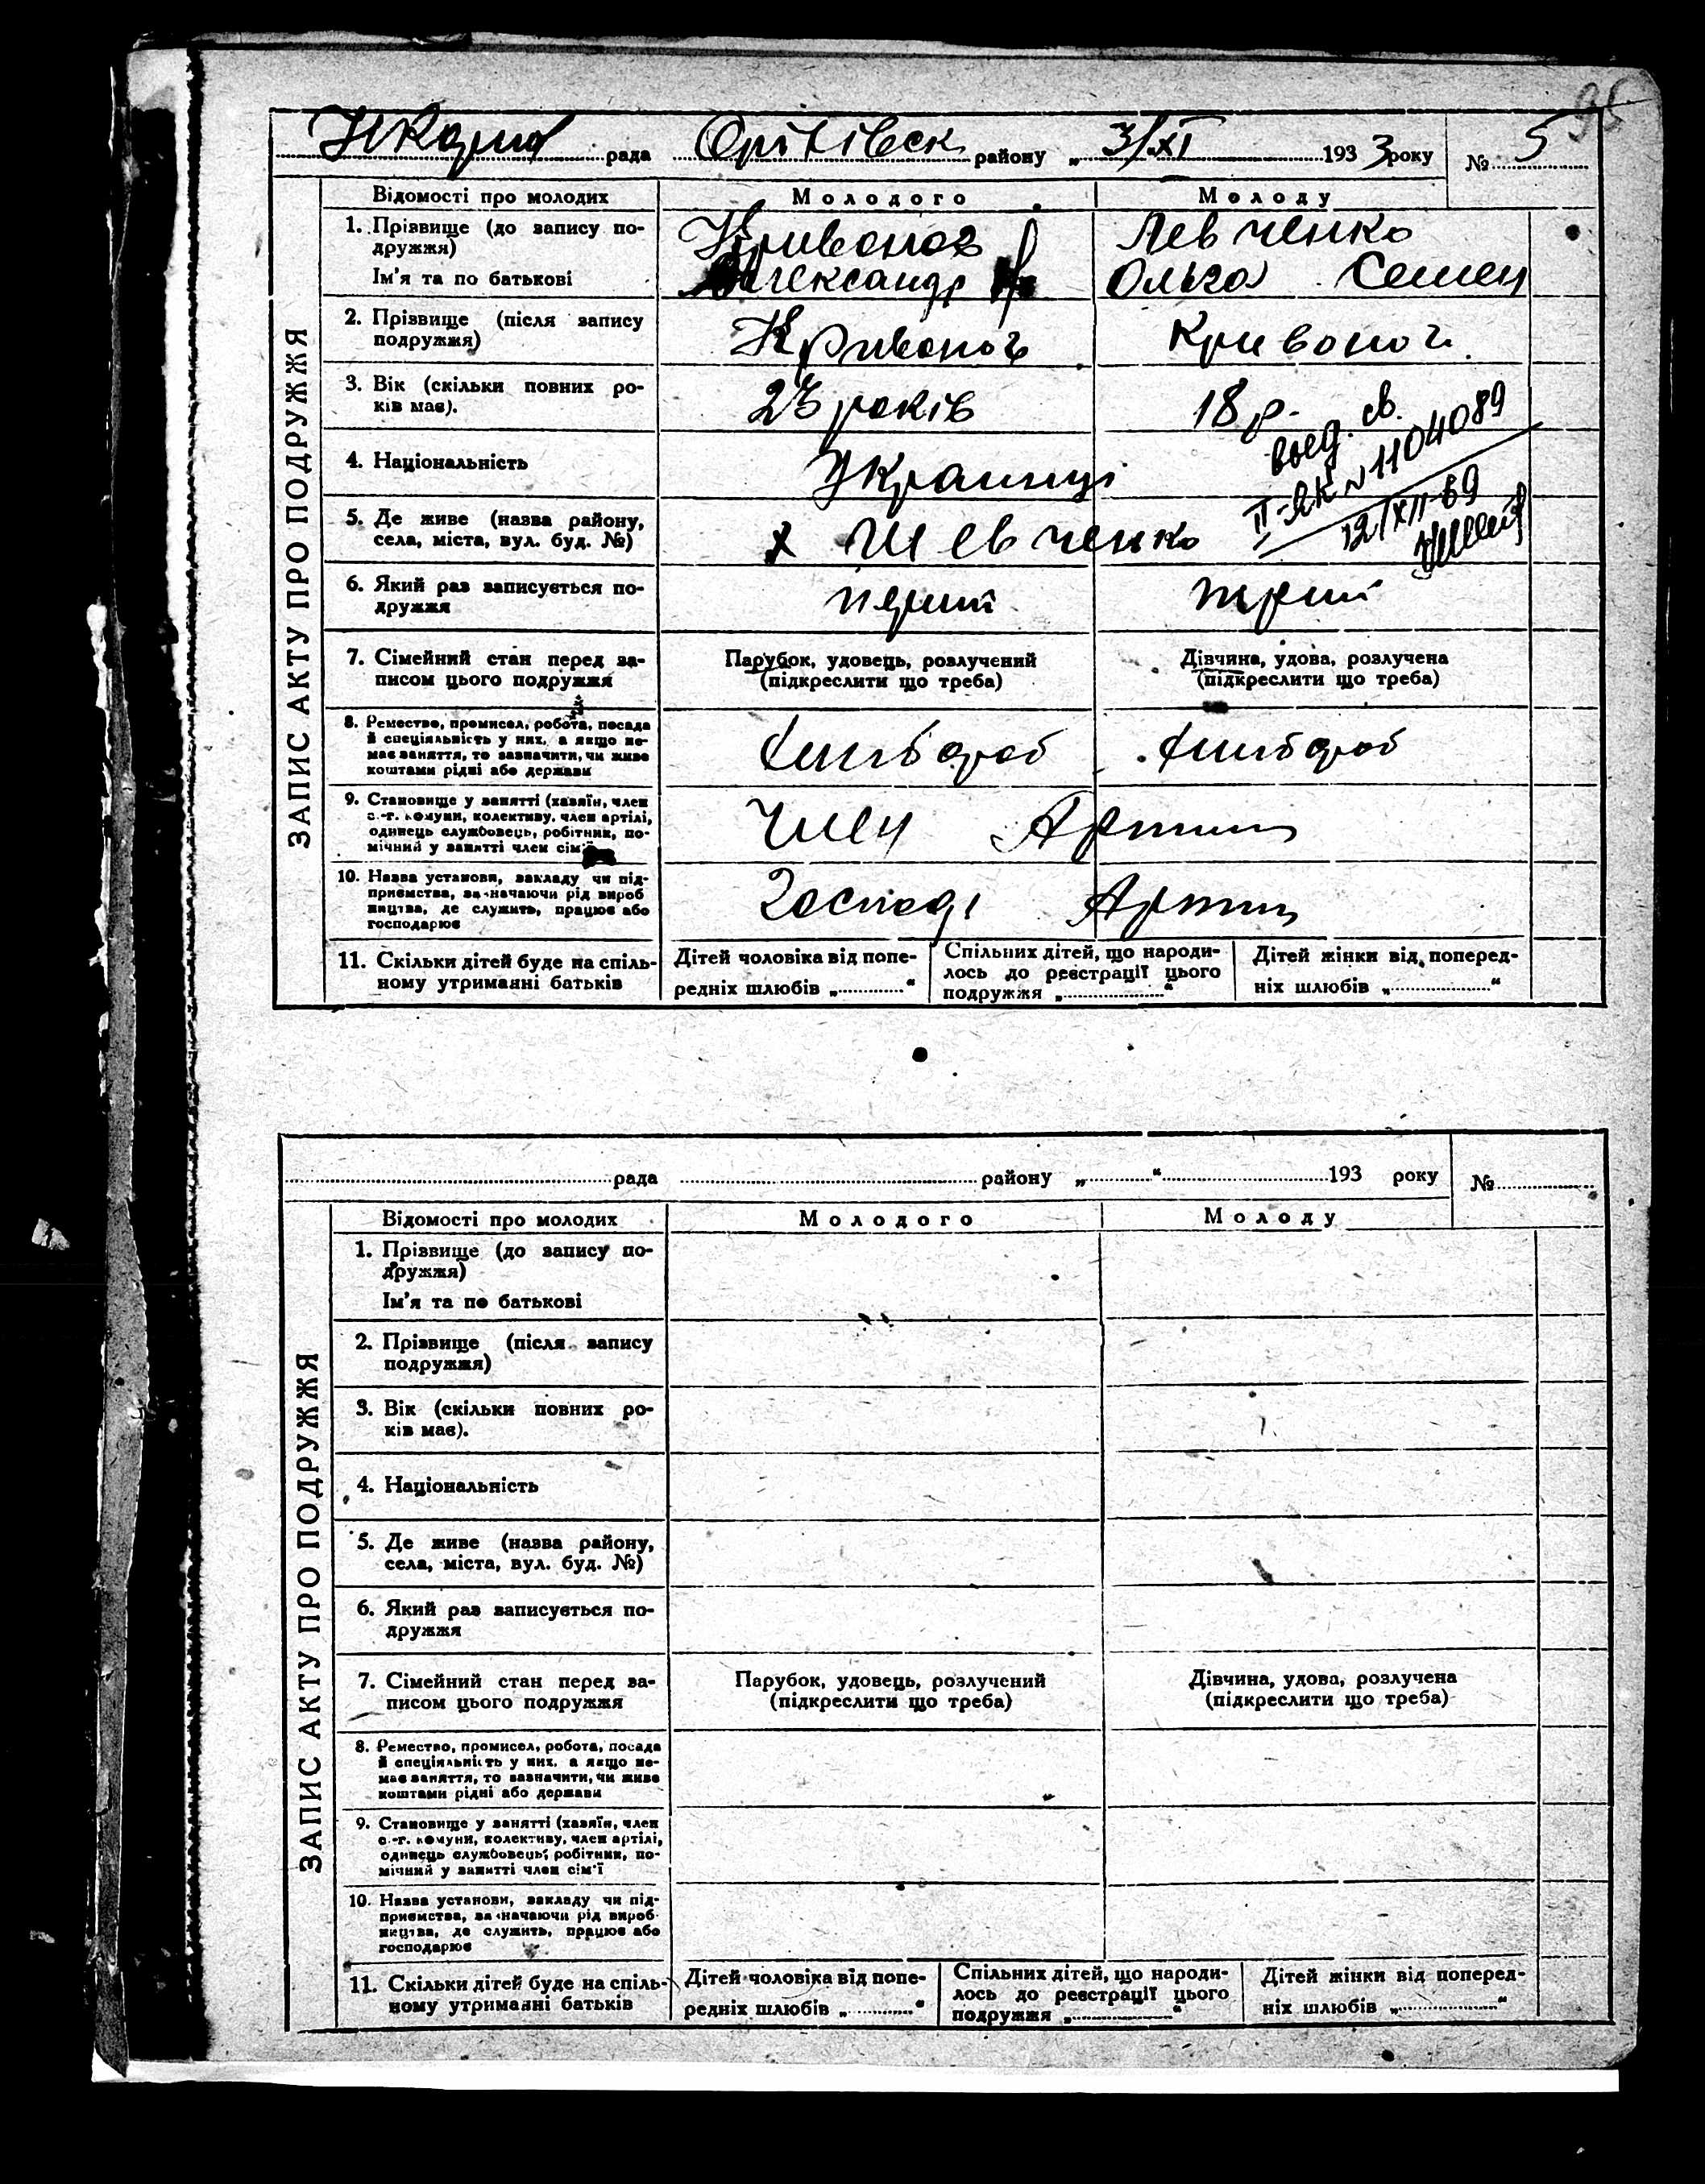 95
рада Оріхівськ району „ 3/XI 1933 року № 5
Відомості про молодих Молодого Молоду
1. Прізвище (до запису по- Кривоног Левченко
дружжя)
Ім'я та по батькові Олександр Ольга Семен
2. Прізвище (після запису Кривоног Кривоног
подружжя)
3. Вік (скільки повних ро- 23 років 18 р.
ків має).
4. Національність Украинці
5. Де живе (назва району, х Шевченко
села, міста, вул. буд. №)
выд. св.
II-ЯК № 1104089
12/XII-69
6. Який раз записується по- перший перший
дружжя
7. Сімейний стан перед за- Парубок, удовець, розлучений Дівчина, удова, розлучена
писом цього подружжя (підкреслити що треба) (підкреслити що треба)
8. Ремество, промисел, робота, посада хлібороб хлібороб
й спеціяльність у них, а якщо не-
має заняття, то зазначити, чи живе
коштами рідні або держави
9. Становище у занятті (хазяїн, член Член Артіли
с.-г. комуни, колективу, член артілі,
одинець службовець, робітник, по-
мічний у занятті член сім'ї
10. Назва установи, закладу чи під-
приємства, зазначаючи рід вироб
ництва, де служить, працює або
господарює
11. Скільки дітей буде на спіль- Дітей чоловіка від попе- Спільних дітей, що народи- Дітей жінки від поперед-
ному утриманні батьків редніх шлюбів „ “ лось до реєстрації цього ніх шлюбів „ “
подружжя „ “
ЗАПИС АКТУ ПРО ПОДРУЖЖЯ
рада району „ “ 193 року №
Відомості про молодих Молодого Молоду
1. Прізвище (до запису по-
дружжя)
Ім'я та по батькові
2. Прізвище (після запису
подружжя)
3. Вік (скільки повних ро-
ків має).
4. Національність
5. Де живе (назва району,
села, міста, вул. буд. №)
6. Який раз записується по-
дружжя
7. Сімейний стан перед за- Парубок, удовець, розлучений Дівчина, удова, розлучена
писом цього подружжя (підкреслити що треба) (підкреслити що треба)
8. Ремество, промисел, робота, посада
й спеціяльність у них, а якщо не-
має заняття, то зазначити, чи живе
коштами рідні або держави
9. Становище у занятті (хазяїн, член
с.-г. комуни, колективу, член артілі,
одинець службовець, робітник, по-
мічний у занятті член сім'ї
10. Назва установи, закладу чи під-
приємства, зазначаючи рід вироб-
ництва, де служить, працює або
господарює
11. Скільки дітей буде на спіль- Дітей чоловіка від попе- Спільних дітей, що народи- Дітей жінки від поперед-
ному утриманні батьків редніх шлюбів „ “ лось до реєстрації цього ніх шлюбів „ “
подружжя „ “
ЗАПИС АКТУ ПРО ПОДРУЖЖЯ